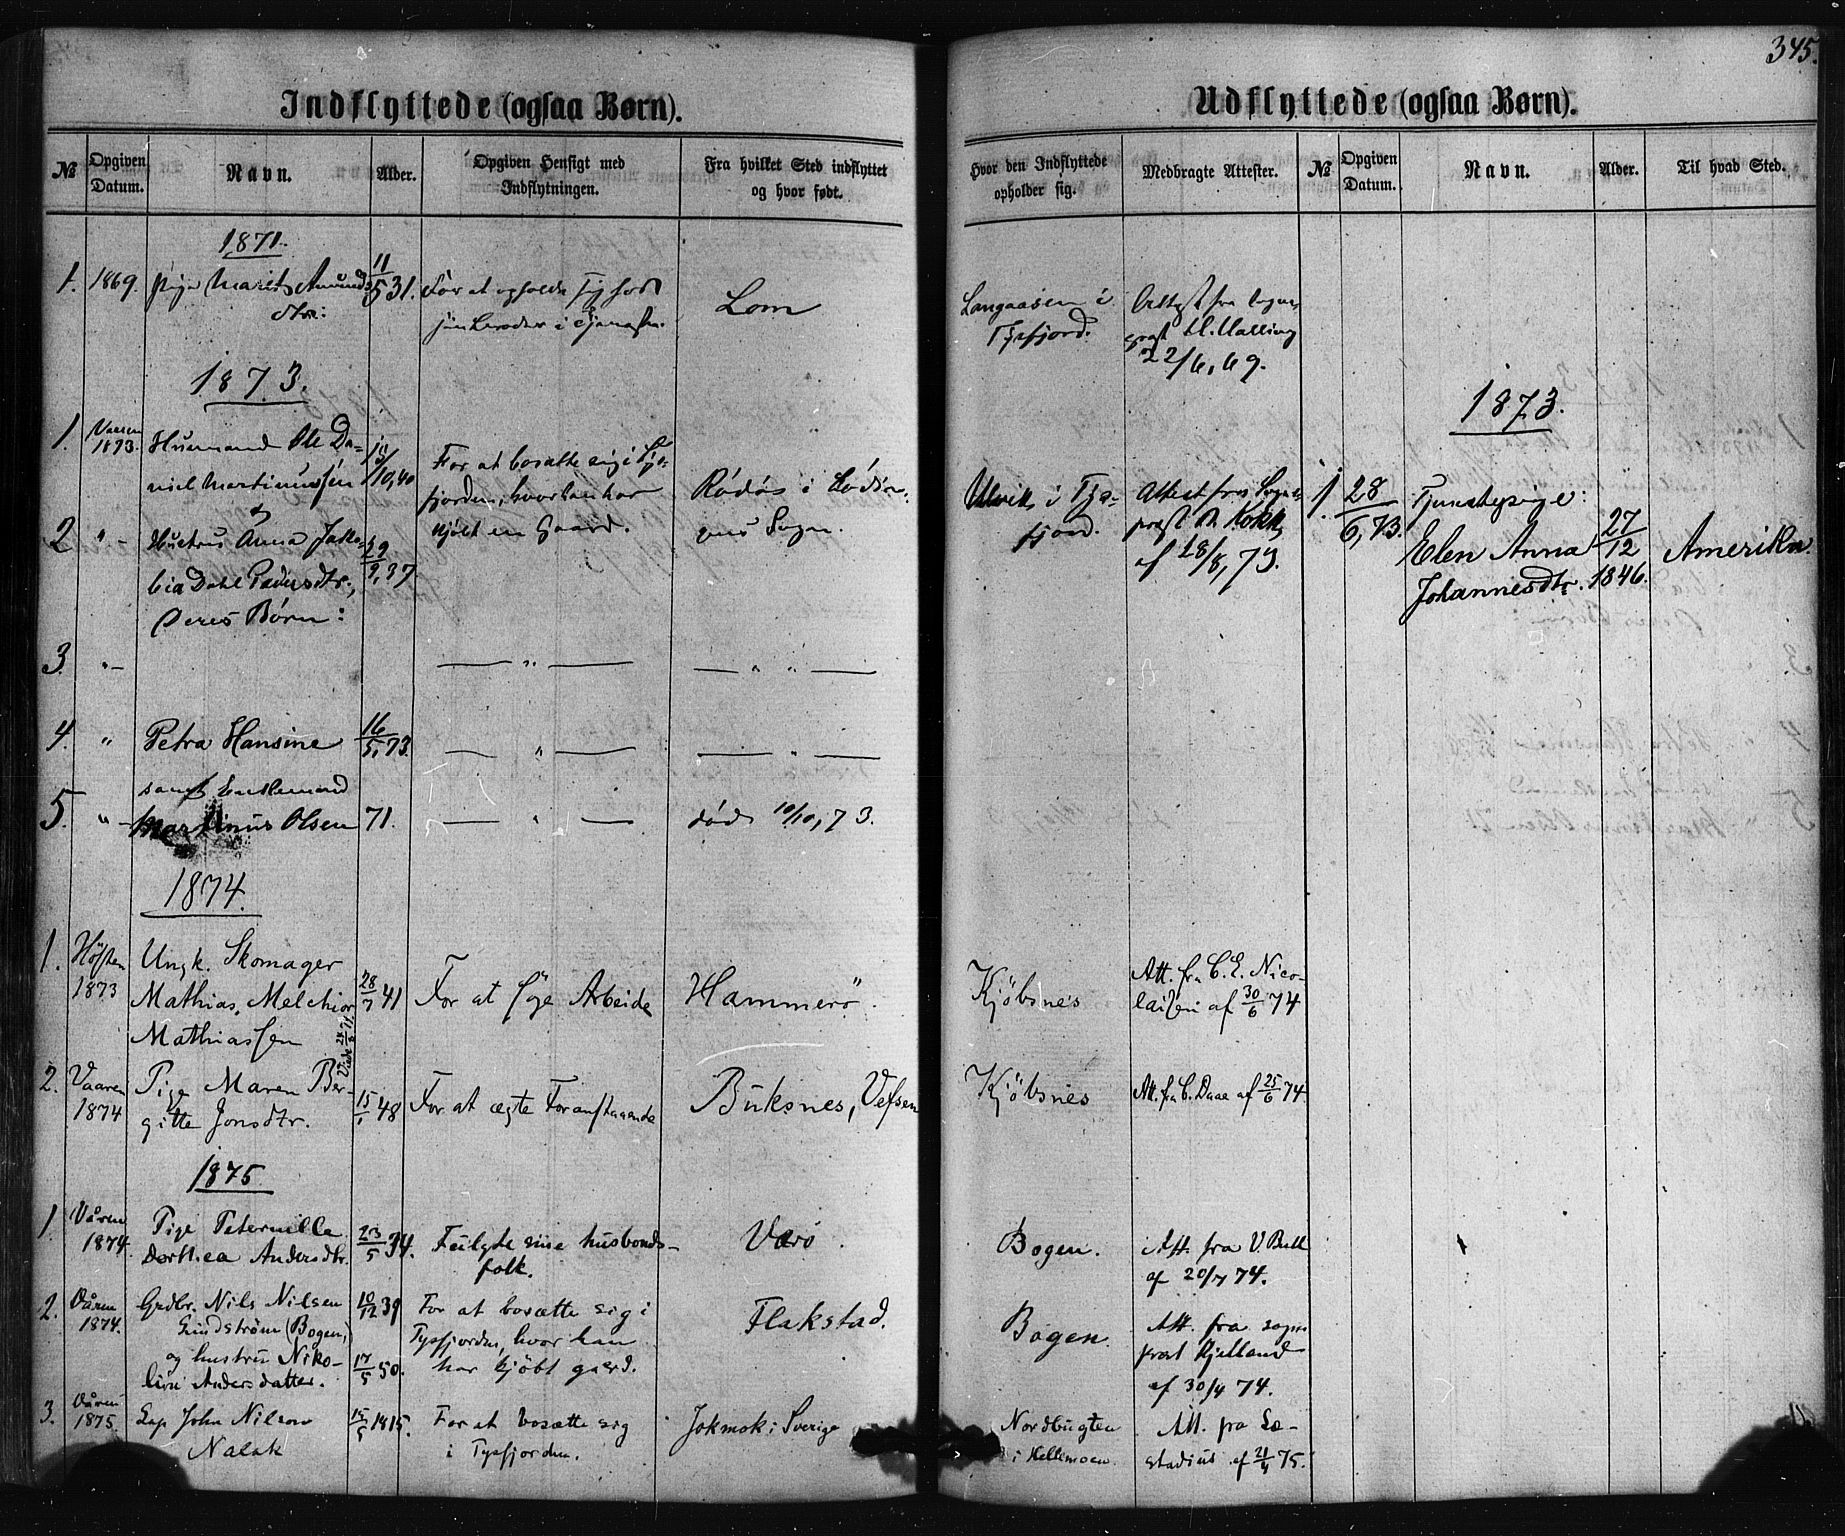 345.
Indflyttede (ogsaa Børn).
№
Opgiven Datum.
Navn.
Alder.
Opgiven Hensigt med Indflytningen.
Fra hvilket Sted indflyttet og hvor født.
Udflyttede (ogsaa Børn).
Hvor den Indflyttede opholder sig.
Medbragte Attester.
№
Opgiven Datum.
Navn.
Alder.
Til hvad Sted.
1871.
1. 1869. Pige Marit Amunds- 11/5 31. For at opholde sig hos Lom
dtr: sin Broder i
Langaasen i Attest fra Sogne-
Tysfjord. præst
22/6, 69.
1873.
1. Vaaren 1873. Husmand Ole Da- 15/10, 40 For at bosætte sig i Tys-
niel Martinussen fjorden, hvor han har Rødøs i Rødø-
& kjøbt en Gaard. ens Sogn.
2 " - Hustru Anna Jako- 29/9, 37
bia Dahl Pedersdtr.,
Deres Børn:
Ulvik i Tys- Attest fra Sogne-
fjord. præst Kokk
af 28/8, 73.
3. " - — " — — " " —
4. " Petra Hansine 16/5, 73. — " — — " —
samt Enkemand
5. " - Martinus Olsen 71. — " — død 10/10, 73.
1873.
1. 28/6, 73. Tjenestepige:
Elen Anna 27/12 Amerika.
Johannesdtr. 1846.
1874.
1. Høsten Ungk. Skomager
1873 Mathias Melchior 28/7 41 For at søge Arbeide Hammerø.
Mathiassen
Kjøbsnes Att. fra C. E. Nico-
laisen af 30/6 74
2. Vaaren Pige Maren Ber-
1874 gitte Jonsdtr. 15/1 48 For at ægte Foranstaaende Buksnes, Vefsen
Kjøbsnes Att. fra C. Daae af 25/6 74.
1875
1. Våren Pige Peternille
1874. Dorthea Andersdtr. 23/5 34. Fulgte sine husbonds- Værø.
folk.
Bogen. Att. fra V. Bull
af 20/7 74.
2. Våren Grdbr. Nils Nilsen 10/12 39 For at bosætte sig i
1874. Lindstrøm (Bogen) Tysfjorden, hvor han Flakstad.
og hustru Niko- 17/5 50. har kjøbt gård.
line Andersdatter.
Bogen. Att. fra sogne
præst Kjelland
af 30/4 74.
3. Våren Lap John Nilsson 15/5 1815. For at bosætte sig Jokmok i Sverige
1875. Nalak i Tysfjorden.
Nordbugten Att. fra Læ-
i Hellemoen. stadius af 21/4 75.